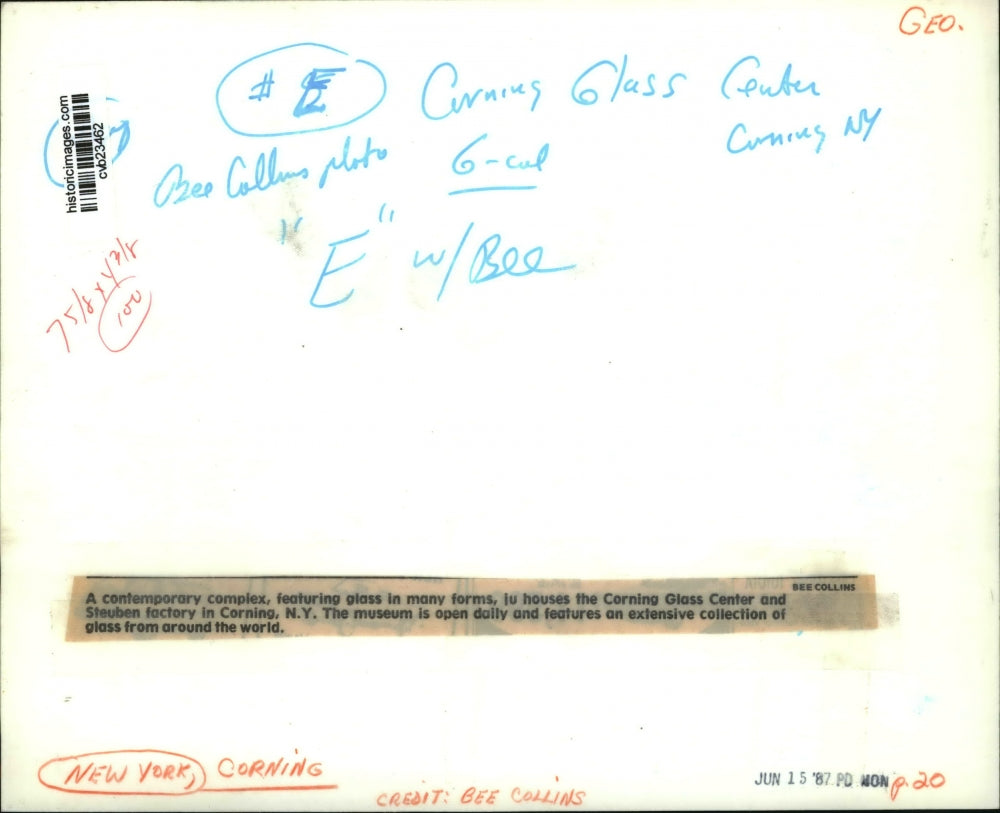 GEO.
# E Corning Glass Center
Corning NY
historicimages.com
cvb23462
Bee Collins photo 6-col
"E" w/Bee
7 5/8 x 4 3/8
100
BEE COLLINS
A contemporary complex, featuring glass in many forms, ju houses the Corning Glass Center and
Steuben factory in Corning, N.Y. The museum is open daily and features an extensive collection of
glass from around the world.
NEW YORK, CORNING
JUN 15 '87 PD MON p.20
CREDIT: BEE COLLINS